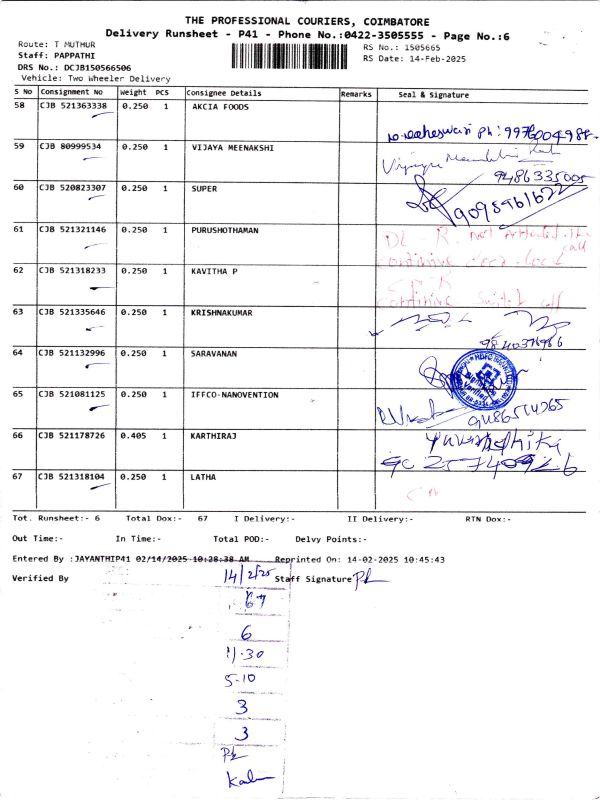 THE PROFESSIONAL COURIERS, COIMBATORE
Delivery Runsheet - P41 - Phone No.:0422-3505555 - Page No.:6
Route: T MUTHUR
RS No.: 1505665
Staff: PAPPATHI
RS Date: 14-Feb-2025
DRS No.: DCJB150566506
Vehicle: Two Wheeler Delivery
S No Consignment No Weight PCS Consignee Details Remarks Seal & Signature
58 CJB 521363338 0.250 1 AKCIA FOODS
ph: 9976004988
59 CJB 80999534 0.250 1 VIJAYA MEENAKSHI
Vijaya Meenakshi
9486335005
60 CJB 520823307 0.250 1 SUPER
9098961622
61 CJB 521321146 0.250 1 PURUSHOTHAMAN
DL R. not Attended the call
continue door lock
62 CJB 521318233 0.250 1 KAVITHA P
continue switch off
63 CJB 521335646 0.250 1 KRISHNAKUMAR
64 CJB 521132996 0.250 1 SARAVANAN
65 CJB 521081125 0.250 1 IFFCO-NANOVENTION
66 CJB 521178726 0.405 1 KARTHIRAJ
9025740926
67 CJB 521318104 0.250 1 LATHA
Tot. Runsheet:- 6 Total Dox:- 67 I Delivery:- II Delivery:- RTN Dox:-
Out Time:- In Time:- Total POD:- Delvy Points:-
Entered By :JAYANTHIP41 02/14/2025 10:28:38 AM Reprinted On: 14-02-2025 10:45:43
Verified By 14/2/25 Staff Signature
67
6
11.30
5-10
3
3